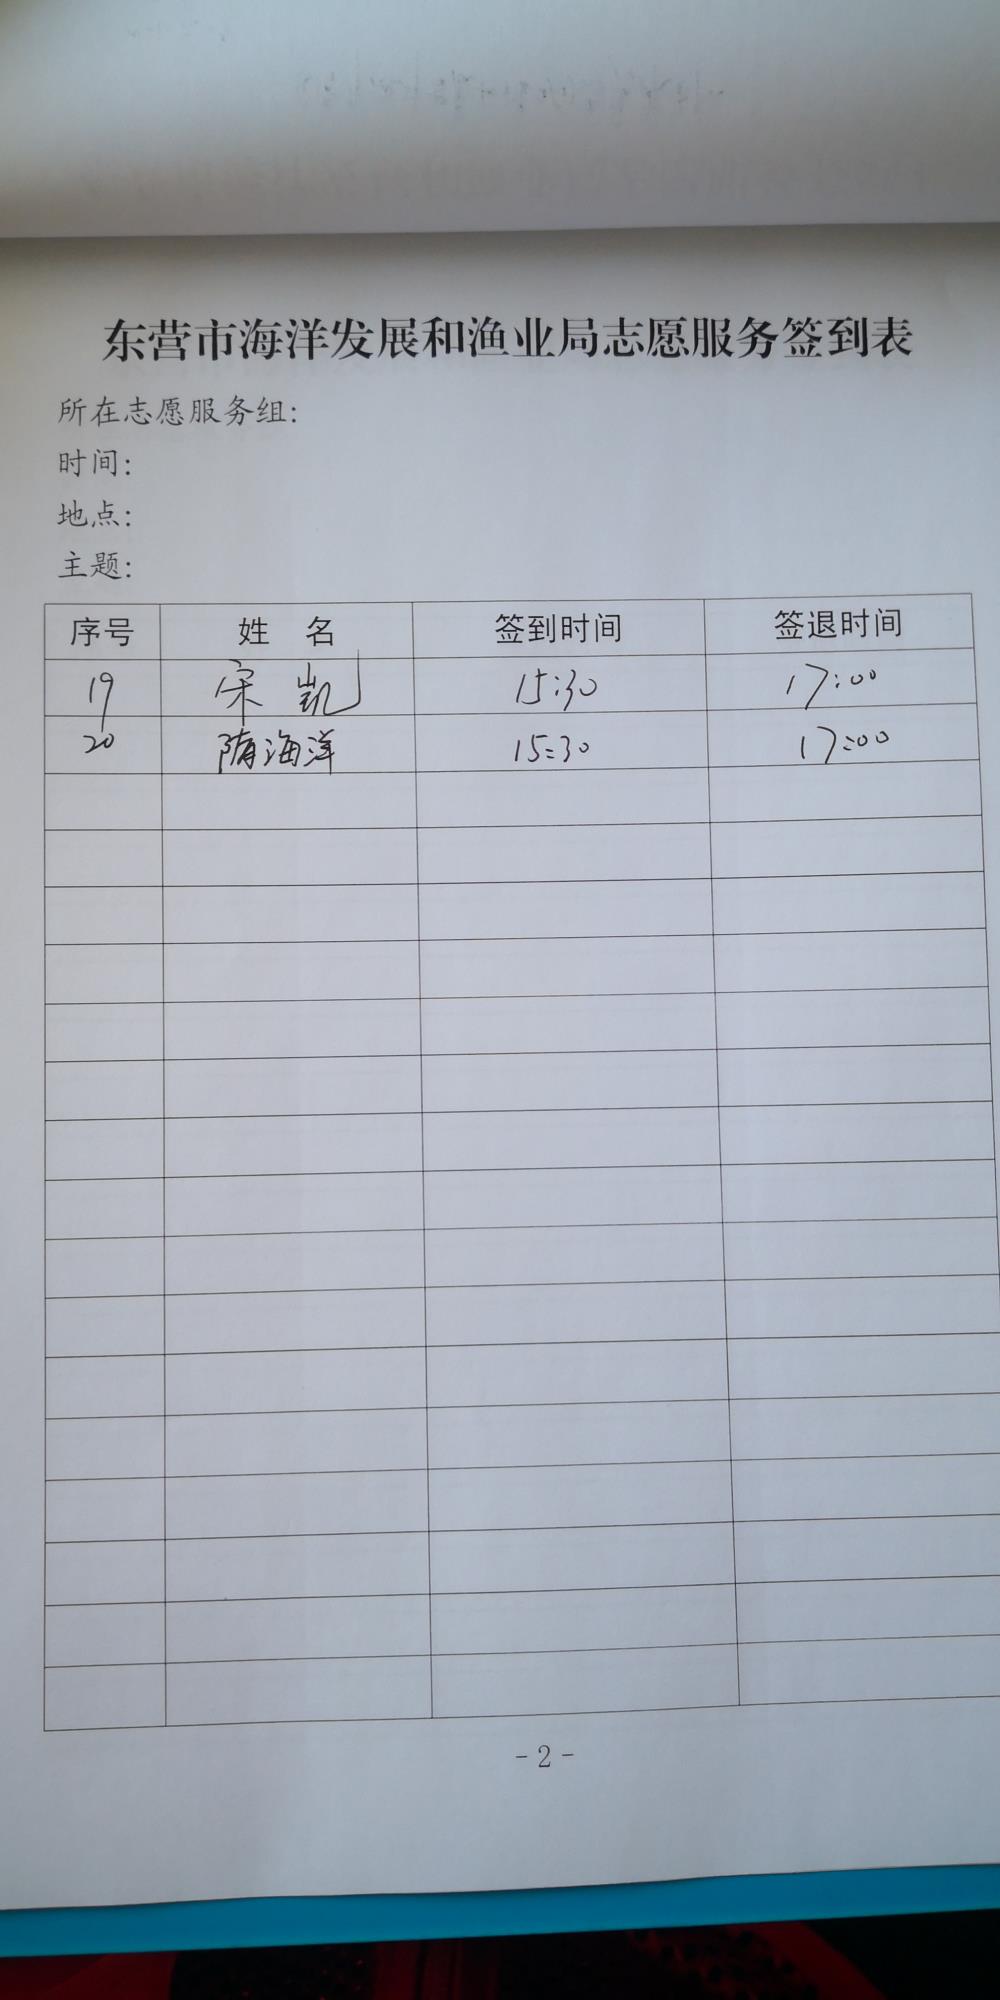 东营市海洋发展和渔业局志愿服务签到表
所在志愿服务组:
时间:
地点:
主题:
序号 姓 名 签到时间 签退时间
19 宋凯 15:30 17:00
20 隋海洋 15:30 17:00
-2-